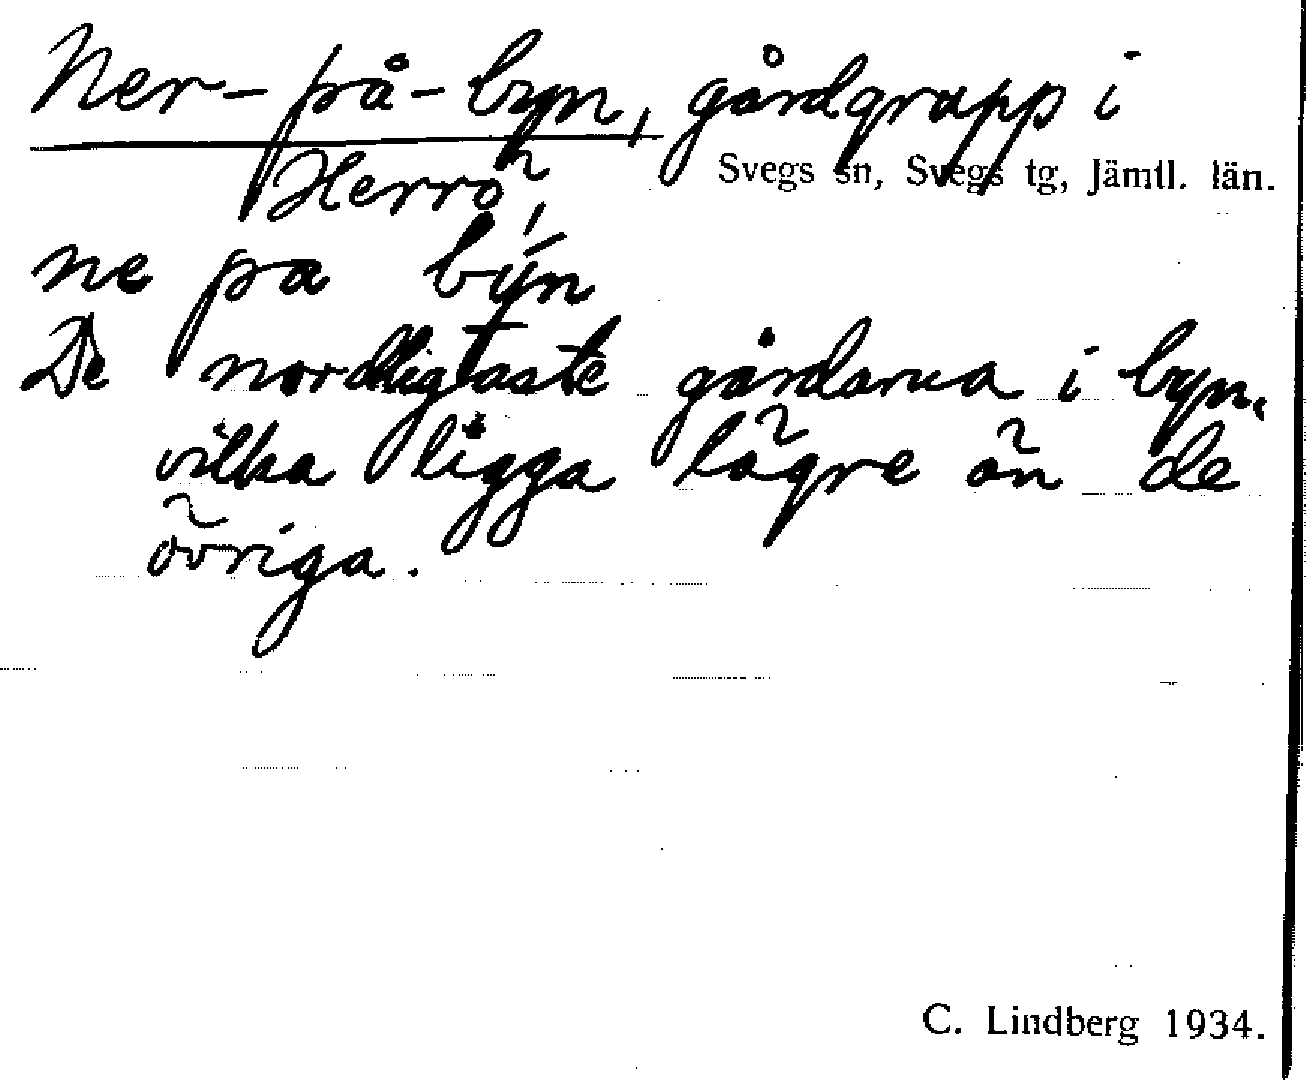 Ner-på-byn, gårdgrupp i
Herrö, Svegs sn, Svegs tg, Jämtl. län.
ne pa býn
De nordligaste gårdarna i byn,
vilka ligga lägre än de
övriga.
C. Lindberg 1934.